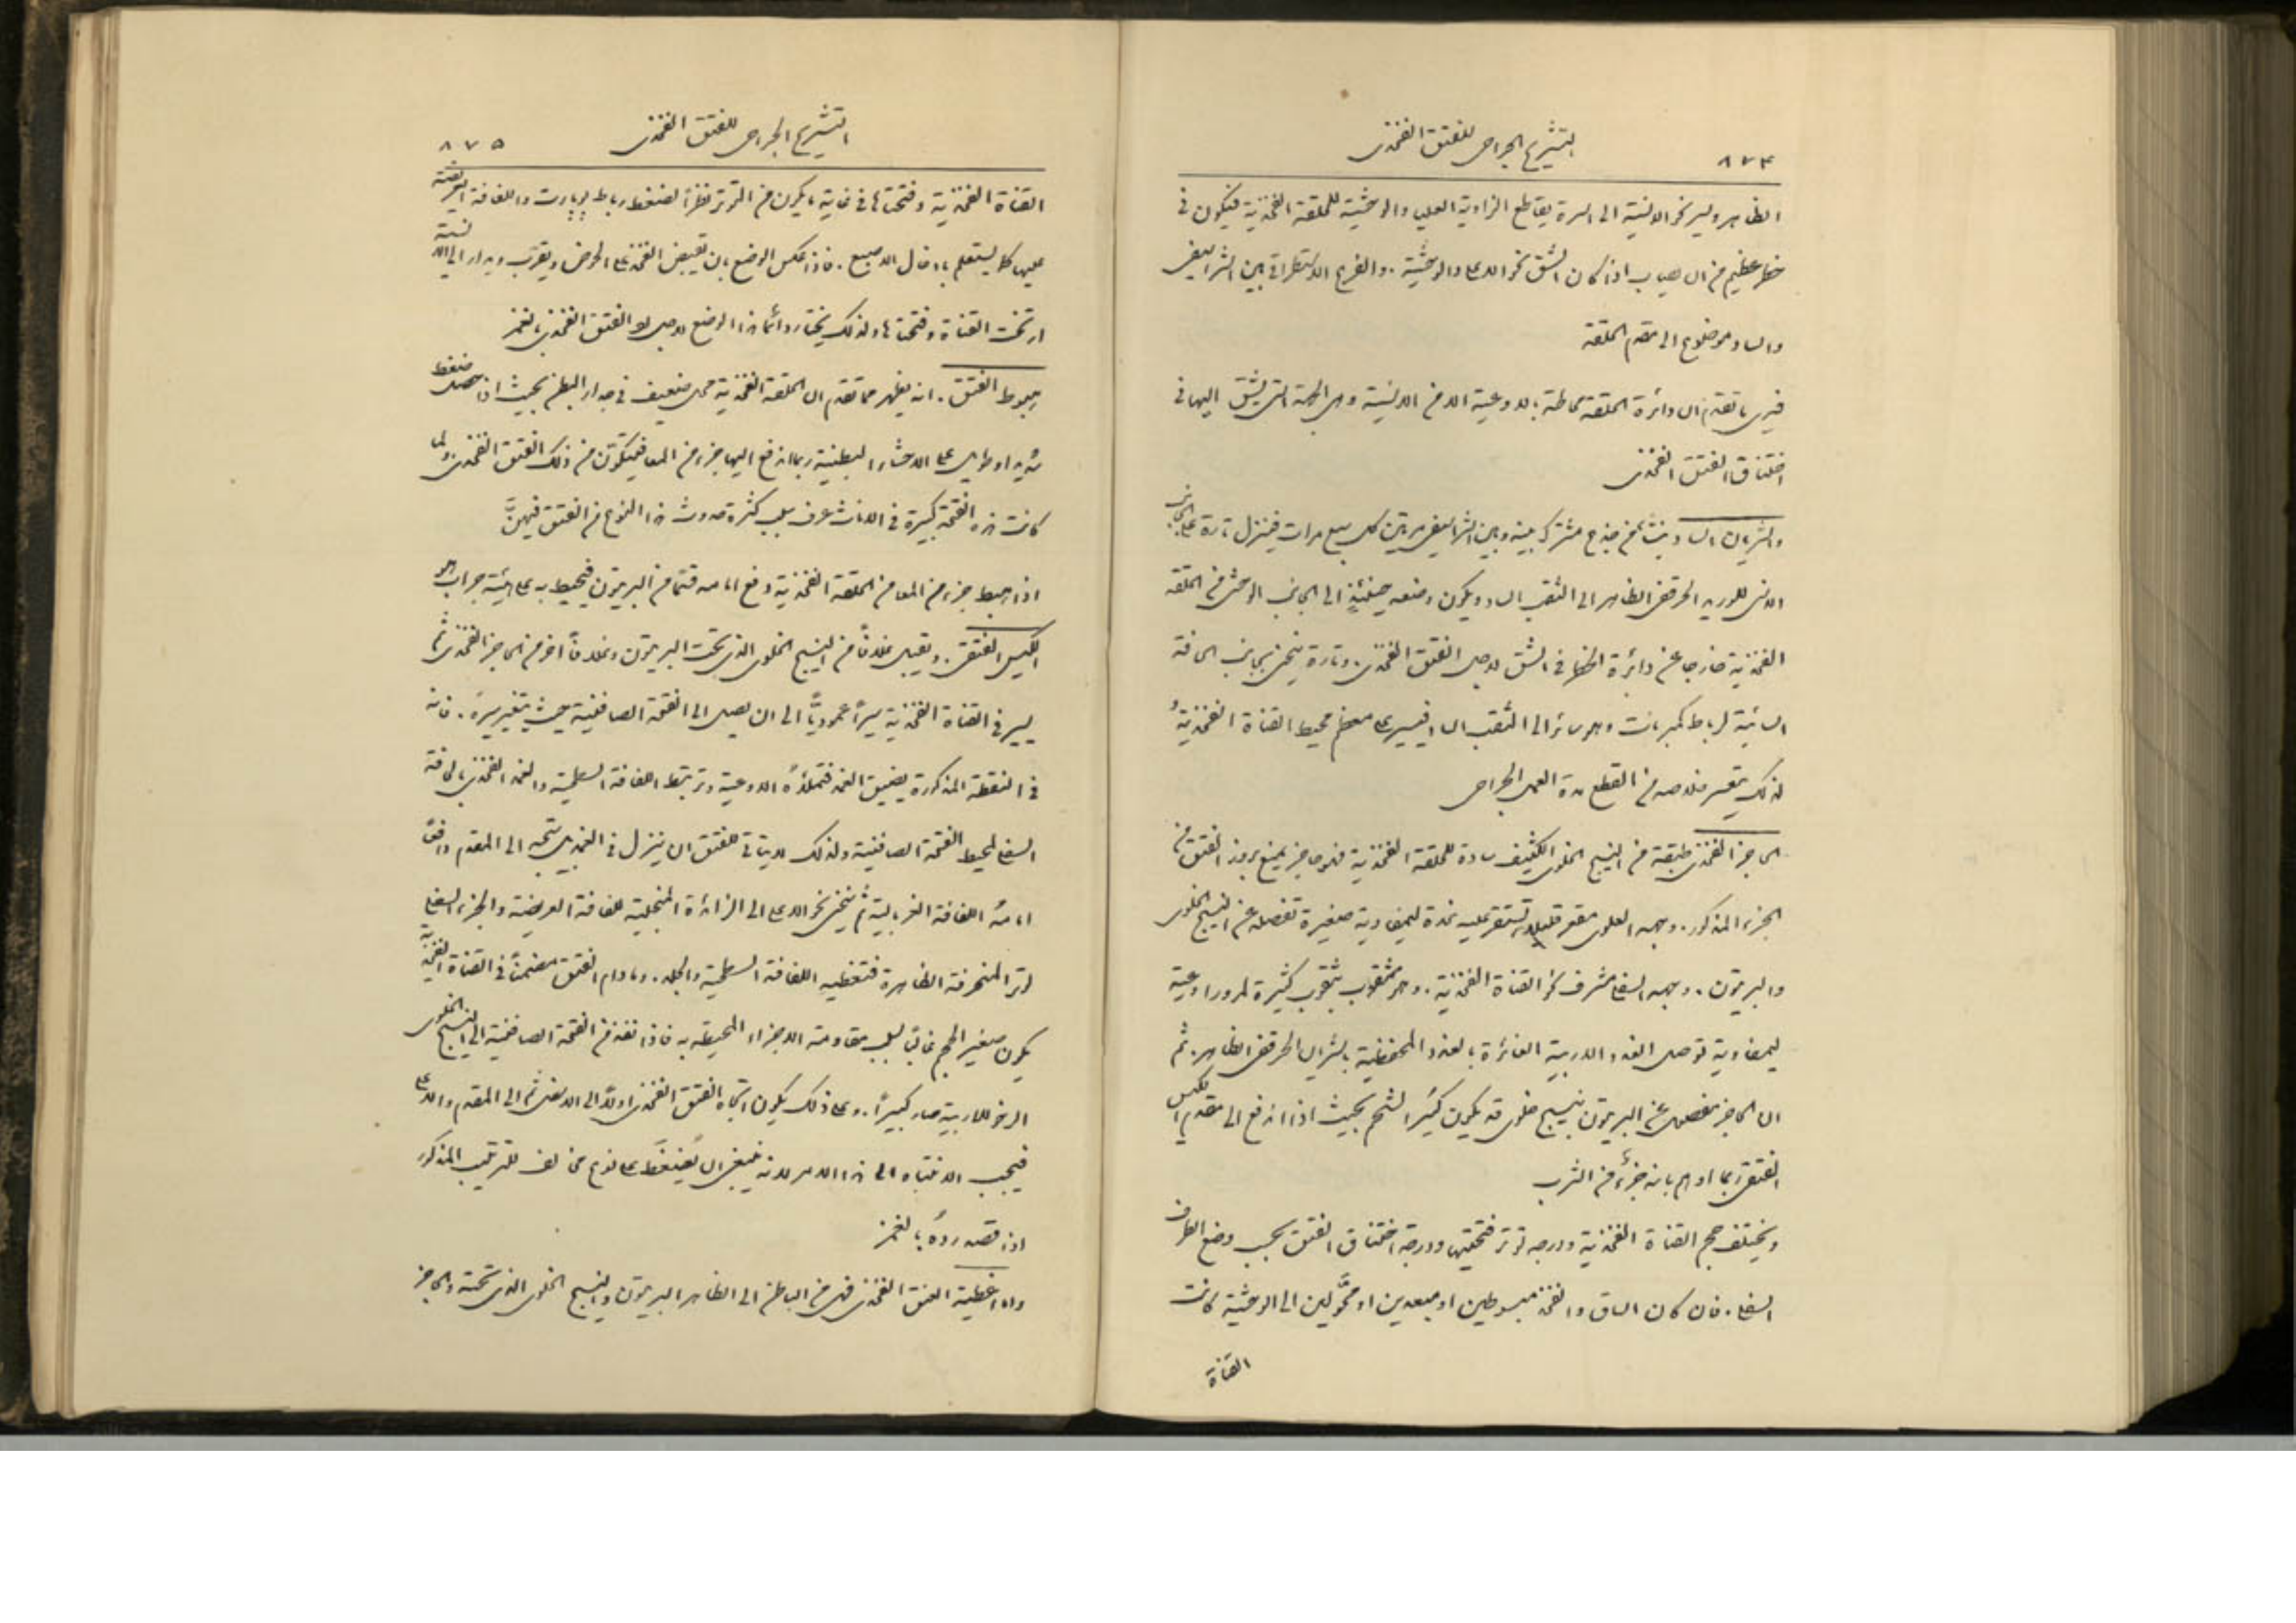 ٨٧٤
التشريح الجراحي للفتق الفخذي
الظاهر ويسير نحو الانسية الى السرة يقاطع الزاوية العليا والوحشية للحلقة الفخذية فيكون في
خطر عظيم من ان يصاب اذا كان الشق نحو الاعلى والوحشية. والفرع الاستطراقي بين الشراسيفي
والساد موضوع الى مقدم الحلقة
فيرى مما تقدم ان دائرة الحلقة محاطة بالاوعية الا من الانسية وهي الجهة التي يشق اليها في
اختناق الفتق الفخذي
والشريان الساد ينشأ من جذع مشترك بينه وبين الشراسيفي مرتين كل سبع مرات فينزل تارة على الجانب
الانسي للوريد الحرقفي الظاهر الى الثقب الساد ويكون وضعه حينئذٍ الى الجانب الوحشي من الحلقة
الفخذية خارجا عن دائرة الخطر في الشق لاجل الفتق الفخذي. وتارة ينحني بجانب الحافة
السائبة لرباط كمبرنات وهو سائر الى الثقب الساد فيسير على معظم محيط القناة الفخذية
لذلك يتعسر خلاصه من القطع مدة العمل الجراحي
الحاجز الفخذي طبقة من النسيج الخلوي الكثيف سادة للحلقة الفخذية فهو حاجز يمنع بروز الفتق من
الجزء المذكور. وجهه العلوي مقعر قليلا تستقر عليه غدة ليمفاوية صغيرة تفصله عن النسيج الخلوي
والبريتون. ووجهه السفلي مشرف نحو القناة الفخذية. وهو مثقوب بثقوب كثيرة لمرور اوعية
ليمفاوية توصل الغدد الاربية الغائرة بالغدد المحفظية بالشريان الحرقفي الظاهر. ثم
ان الحاجز مفصول عن البريتون بنسيج خلوي قد يكون كثير الشحم بحيث اذا اندفع الى مقدم الكيس
الفتقي ربما اوهم بانه جزء من الثرب
ويختلف حجم القناة الفخذية ودرجة توتر فتحتيها ودرجة اختناق الفتق بحسب وضع الطرف
السفلي. فان كان الساق والفخذ مبسوطين او مبعدين او محوّلين الى الوحشية كانت
القناة
التشريح الجراحي للفتق الفخذي
٨٧٥
القناة الفخذية وفتحتاها في غاية ما يكون من التوتر نظراً لضغط رباط بوبارت واللفافة العريضة
عليها كما يستعلم بادخال الاصبع. فاذا عكس الوضع بان تقبض الفخذ على الحوض وتقرّب ويدار الى الانسية
ارتخت القناة وفتحتاها ولذلك يختار دائما هذا الوضع لاجل رد الفتق الفخذي بالغمز
هبوط الفتق. انه يظهر مما تقدم ان الحلقة الفخذية محل ضعيف في جدار البطن بحيث اذا حصل ضغط
شديد او طويل على الاحشاء البطنية ربما اندفع اليها جزء من المعا فيتكوّن من ذلك الفتق الفخذي. ولما
كانت هذه الفتحة كبيرة في الاناث عرف سبب كثرة حدوث هذا النوع من الفتق فيهنَّ
اذا هبط جزء من المعا من الحلقة الفخذية دفع امامه قسماً من البريتون فيحيط به على هيئة جراب هو
الكيس الفتقي. ويقبل غلافاً من النسيج الخلوي الذي تحت البريتون وغلافاً آخر من الحاجز الفخذي ثم
يسير في القناة الفخذية سيراً عموديّاً الى ان يصل الى الفتحة الصافنية حيث يتغير سيره. فانه
في النقطة المذكورة يضيق الغمد فتملأه الاوعية وترتبط اللفافة السطحية والغمد الفخذي بالحافة
السفلى لمحيط الفتحة الصافنية ولذلك لا يتأتى للفتق ان ينزل في الفخذ بل يتجه الى المقدم دافعًا
امامهُ اللفافة الغربالية ثم ينحني نحو الاعلى الى الزائدة المنجلية للفافة العريضة والجزء السفلي
لوتر المنحرفة الظاهرة فتغطيه اللفافة السطحية والجلد. وما دام الفتق منضمناً في القناة الفخذية
يكون صغير الحجم غالباً بسبب مقاومة الاجزاء المحيطة به فاذا نفذ من الفتحة الصافنية الى النسيج الخلوي
الرخو للاربية صار كبيراً. وعلى ذلك يكون اتجاه الفتق الفخذي اولاً الى الاسفل ثم الى المقدم والاعلى
فيجب الانتباه الى هذا الامر لانه ينبغي ان يُضغَط على نوع مخالف للترتيب المذكور
اذا قصد ردهُ بالغمز
واما اغطية الفتق الفخذي فهي من الباطن الى الظاهر البريتون والنسيج الخلوي الذي تحته والحاجز